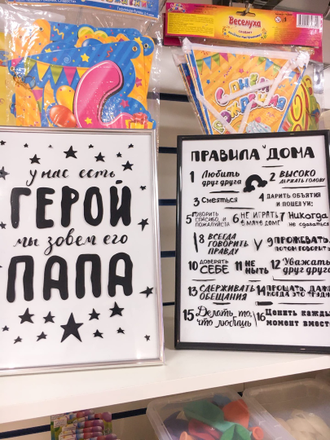 Веселуха
С Днём
Рождения
у нас есть
ГЕРОЙ
мы зовем его
ПАПА
ПРАВИЛА ДОМА
1 Любить друг друга
2 ВЫСОКО ДЕРЖАТЬ ГОЛОВУ
3 Смеяться
4 ДАРИТЬ ОБЪЯТИЯ И ПОЦЕЛУИ
5 ГОВОРИТЬ СПАСИБО, И ПОЖАЛУЙСТА
6 НЕ ИГРАТЬ В МЯЧ В ДОМЕ
7 Никогда не сдаваться
8 ВСЕГДА ГОВОРИТЬ ПРАВДУ
9 ПРОЖЕВАТЬ, ПОТОМ ГОВОРИТЬ
10 ДОВЕРЯТЬ СЕБЕ
11 НЕ НЫТЬ
12 Уважать друг друга
13 СДЕРЖИВАТЬ ОБЕЩАНИЯ
14 ПРОЩАТЬ, ДАЖЕ КОГДА ЭТО ТРУДНО
15 Делать то, что любишь
16 Ценить каждый момент вместе